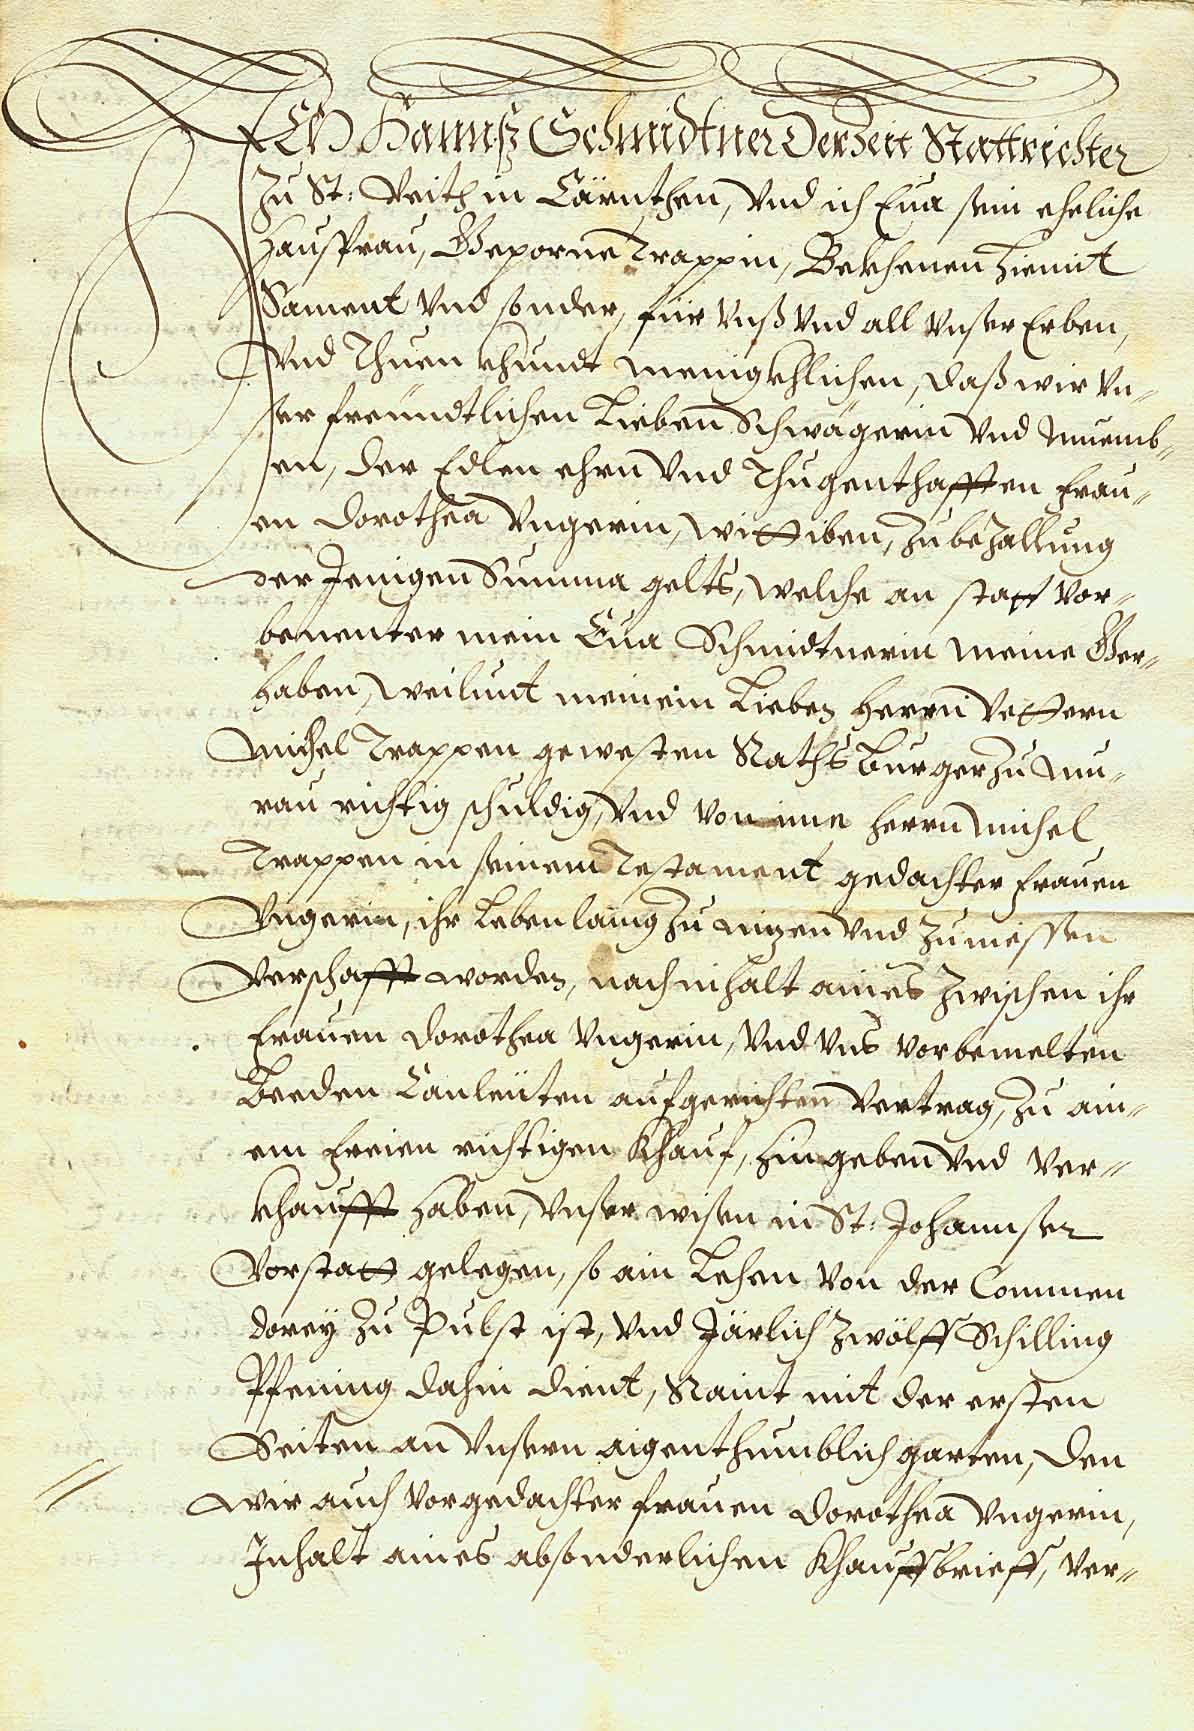 ICH Hannß Schmidtner Derzeit Stattrichter
Zu St: Veith in Cärnthen, Vnd ich Eua sein eheliche
Hausfrau, Geporne Trappin, Bekhenen hiemit
Sament Vnd sonder, für Vnß Vnd all Vnser Erben,
Vnd Thuen khundt menigkhlichen, daß wir Vn-
ser freündtlichen Lieben Schwägerin Vnd Muemb-
en, der Edlen ehrn Vnd Thugenthafften Frau-
en Dorothea Vngerin, Wittiben, Zu bezallung
der Jenigen Summa gelts, welche an statt Vor-
benenter mein Eua Schmidtnerin meine Ger-
haben, Weilunt meinem Lieben Herrn Vettern
Michel Trappen gewesten Raths Burger Zu Mu-
rau richtig schuldig, Vnd von ime Herrn Michel
Trappen in seinem Testament gedachter Frauen
Vngerin, ihr Lebenlanng Zu nuzen Vnd Zu niessen
Verschafft worden, nach inhalt aines Zwischen ihr
Frauen Dorothea Vngerin, Vnd Vns Vorbemelten
Beeden Conleüten aufgerichten Vertrag, Zu ain-
em Freien richtigen Khauf, hingeben Vnd Ver-
khaufft haben, Vnser wisen in St: Johannser
Vorstatt gelegen, so ain Lehen Von der Commen
dorey Zu Pulst ist, Vnd Järlich Zwölff Schilling
Pfening dahin dient, Raint mit der ersten
Seiten an Vnsern aigenthumblich garten, den
wir auch Vorgedachter Frauen Dorothea Vngerin,
Inhalt aines absonderlichen Khauffsbrieffs, Ver-